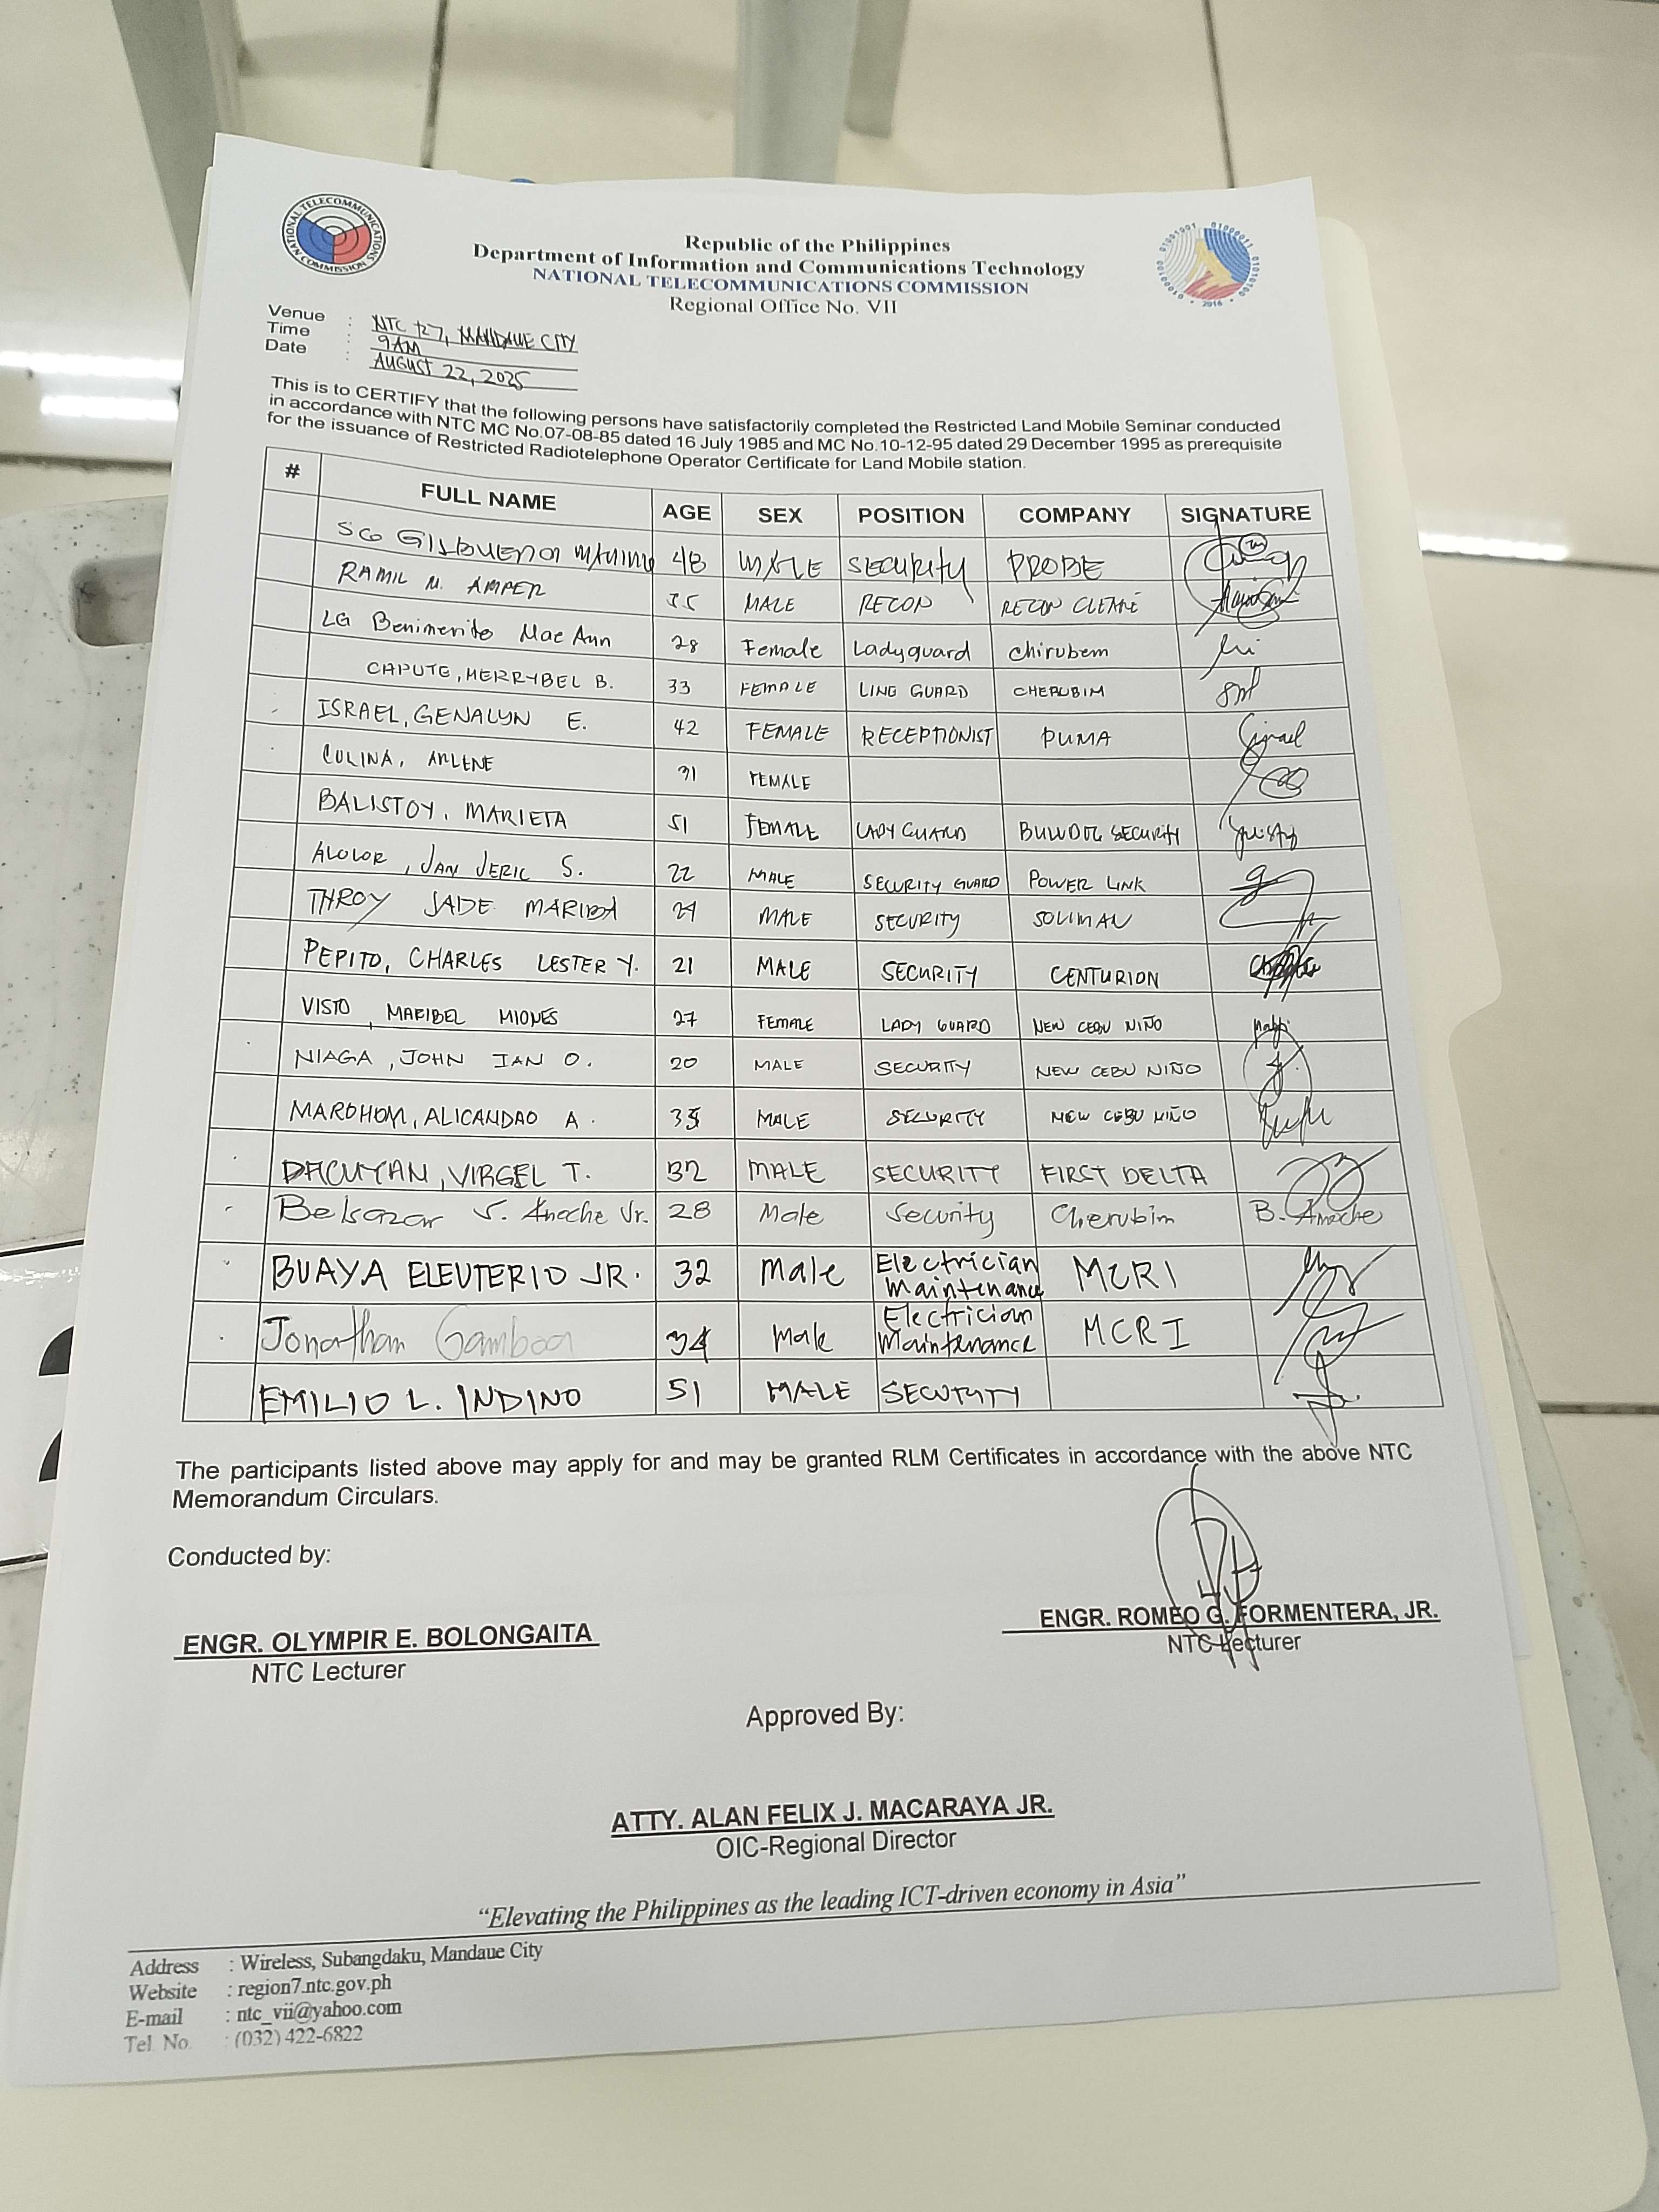 NATIONAL TELECOMMUNICATIONS COMMISSION
Republic of the Philippines
Department of Information and Communications Technology
NATIONAL TELECOMMUNICATIONS COMMISSION
Regional Office No. VII
2016
Venue : NTC R7, MANDAUE CITY
Time : 9AM
Date : AUGUST 22, 2025
This is to CERTIFY that the following persons have satisfactorily completed the Restricted Land Mobile Seminar conducted
in accordance with NTC MC No.07-08-85 dated 16 July 1985 and MC No.10-12-95 dated 29 December 1995 as prerequisite
for the issuance of Restricted Radiotelephone Operator Certificate for Land Mobile station.
# FULL NAME AGE SEX POSITION COMPANY SIGNATURE
48 MALE SECURITY PROBE
RAMIL M. AMPER 35 MALE RECON RECON
LG Benimerito Mae Ann 28 Female Ladyguard Chirubem
CAPUTE, MERRYBEL B. 33 FEMALE LING GUARD CHERUBIM
ISRAEL, GENALYN E. 42 FEMALE RECEPTIONIST PUMA
CULINA, ARLENE 31 FEMALE
BALISTOY, MARIETA 51 FEMALE LADY GUARD SECURITY
ALOLOR, JAN JERIC S. 22 MALE SECURITY GUARD POWER LINK
THROY JADE 29 MALE SECURITY SOLIMAN
PEPITO, CHARLES LESTER Y. 21 MALE SECURITY CENTURION
VISTO, MARIBEL MIONES 27 FEMALE LADY GUARD NEW CEBU NIÑO
NIAGA, JOHN IAN O. 20 MALE SECURITY NEW CEBU NIÑO
MAROHOM, ALICANDAO A. 35 MALE SECURITY NEW CEBU NIÑO
DACUYAN, VIRGEL T. 32 MALE SECURITY FIRST DELTA
Belsazar S. Anoche Jr. 28 Male Security Cherubim B. Anoche
BUAYA ELEUTERIO JR. 32 Male Electrician Maintenance MCRI
Jonathan Gamboa 34 Male Electrician Maintenance MCRI
EMILIO L. INDINO 51 MALE
The participants listed above may apply for and may be granted RLM Certificates in accordance with the above NTC
Memorandum Circulars.
Conducted by:
ENGR. OLYMPIR E. BOLONGAITA
NTC Lecturer
ENGR. ROMEO G. FORMENTERA, JR.
NTC Lecturer
Approved By:
ATTY. ALAN FELIX J. MACARAYA JR.
OIC-Regional Director
“Elevating the Philippines as the leading ICT-driven economy in Asia”
Address : Wireless, Subangdaku, Mandaue City
Website : region7.ntc.gov.ph
E-mail : ntc_vii@yahoo.com
Tel. No. : (032) 422-6822